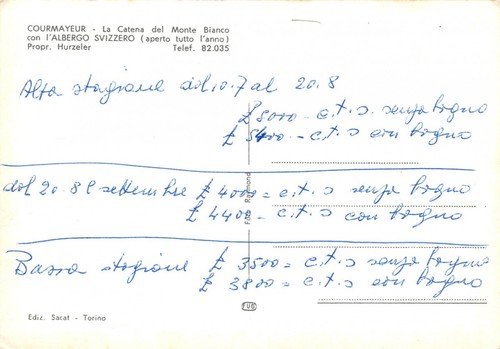 COURMAYEUR - La Catena del Monte Bianco
con l'ALBERGO SVIZZERO (aperto tutto l'anno)
Propr. Hurzeler Telef. 82.035
Alta stagione dal 10.7 al 20.8
£ 5000 - c.t.s. senza bagno
£ 5400 - c.t.s con bagno
dal 20.8 e settembre £ 4000 = c.t.s senza bagno
£ 4400 - c.t.s con bagno
Bassa stagione £ 3500 = c.t.s senza bagno
£ 3800 = c.t.s con bagno
Ediz. Sacat - Torino